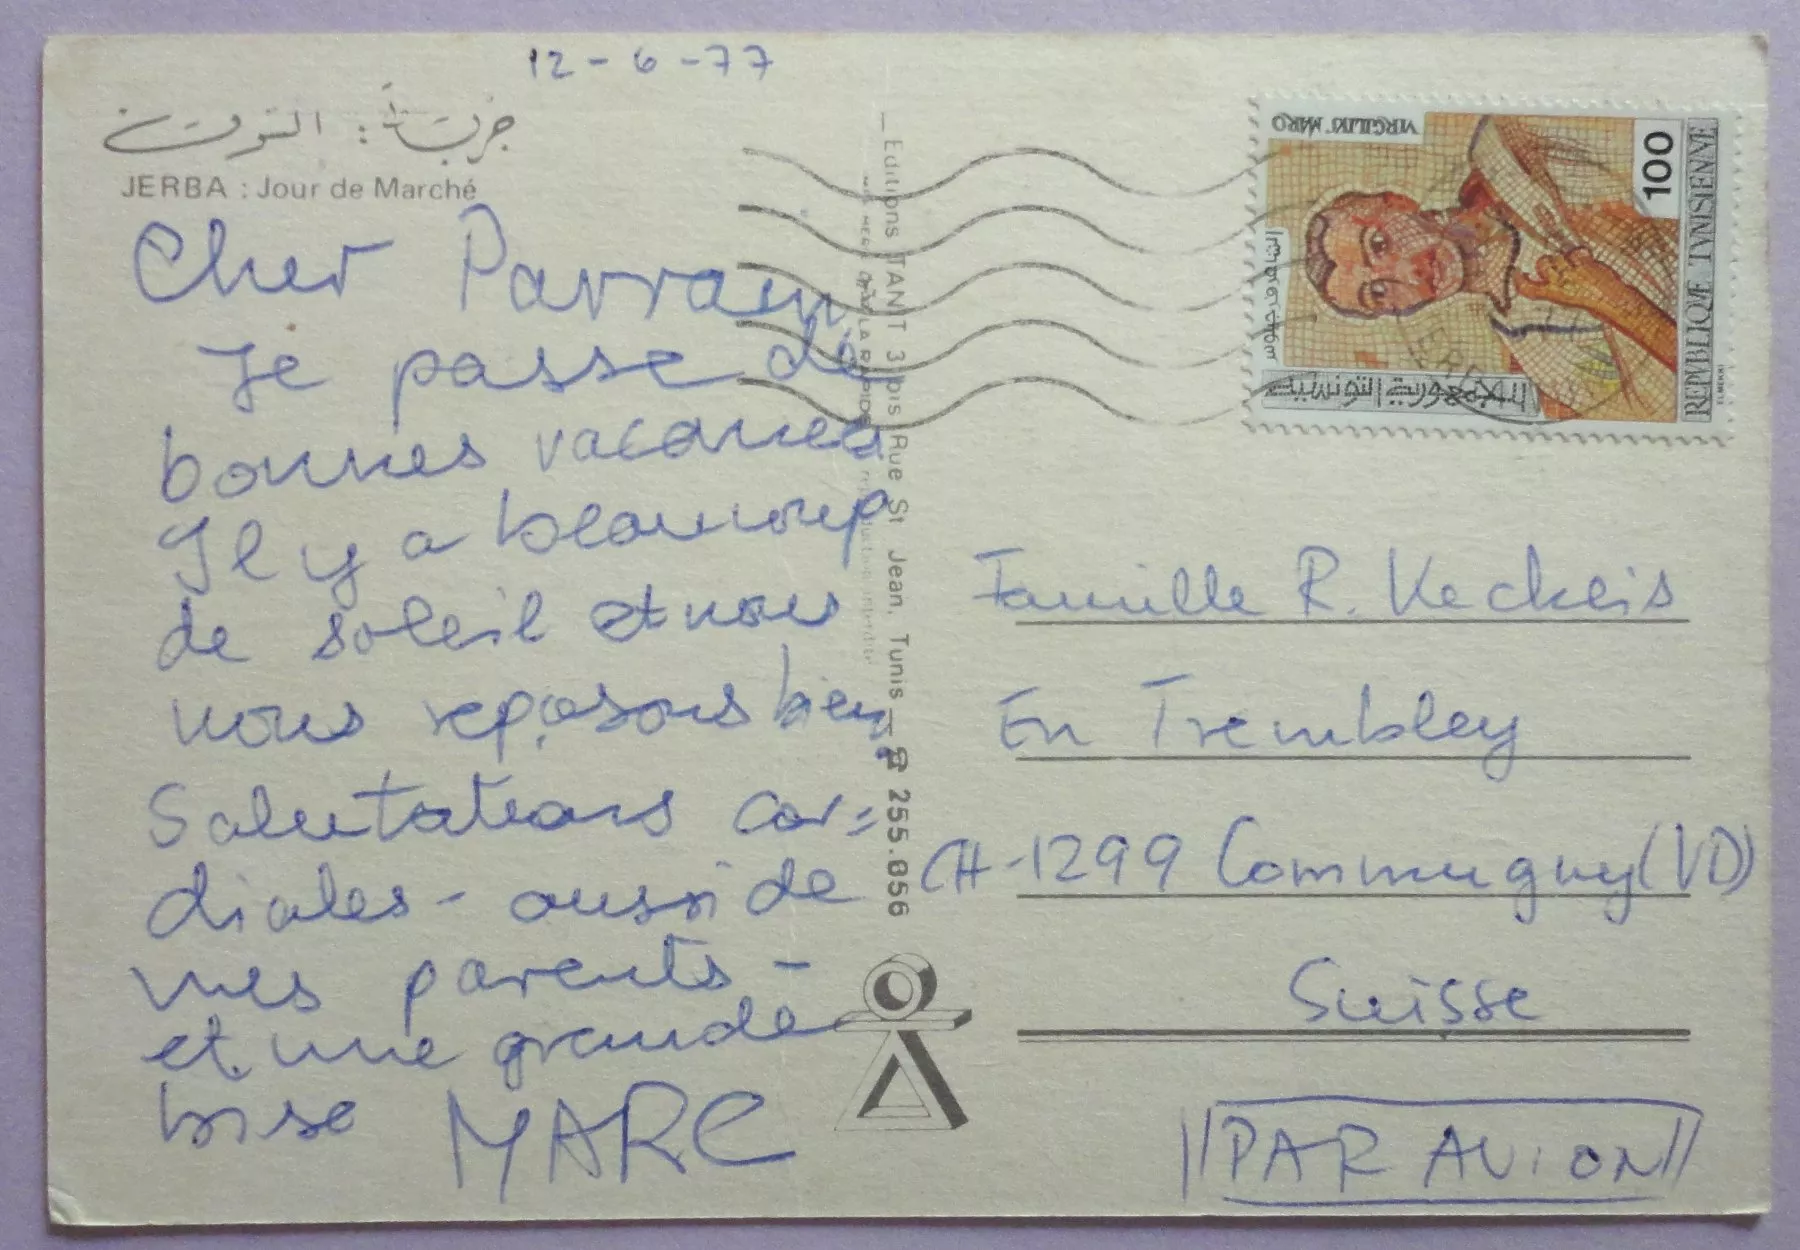 12-6-77
JERBA : Jour de Marché
Cher Parrain
Je passe de
bonnes vacances
Il y a beaucoup
de soleil et nous
nous reposons bien.
Salutations cor=
diales - aussi de
mes parents -
et une grande
bise MARC
Editions TANIT 3 bis Rue St Jean. Tunis — ☎ 255.856
VIRGILIUS MARO
100
REPVBLIQVE TVNISIENNE
ELMEKKI
الجمهورية التونسية
Famille R. Keckeis
En Trembley
CH-1299 Commugny (VD)
Suisse
PAR AVION